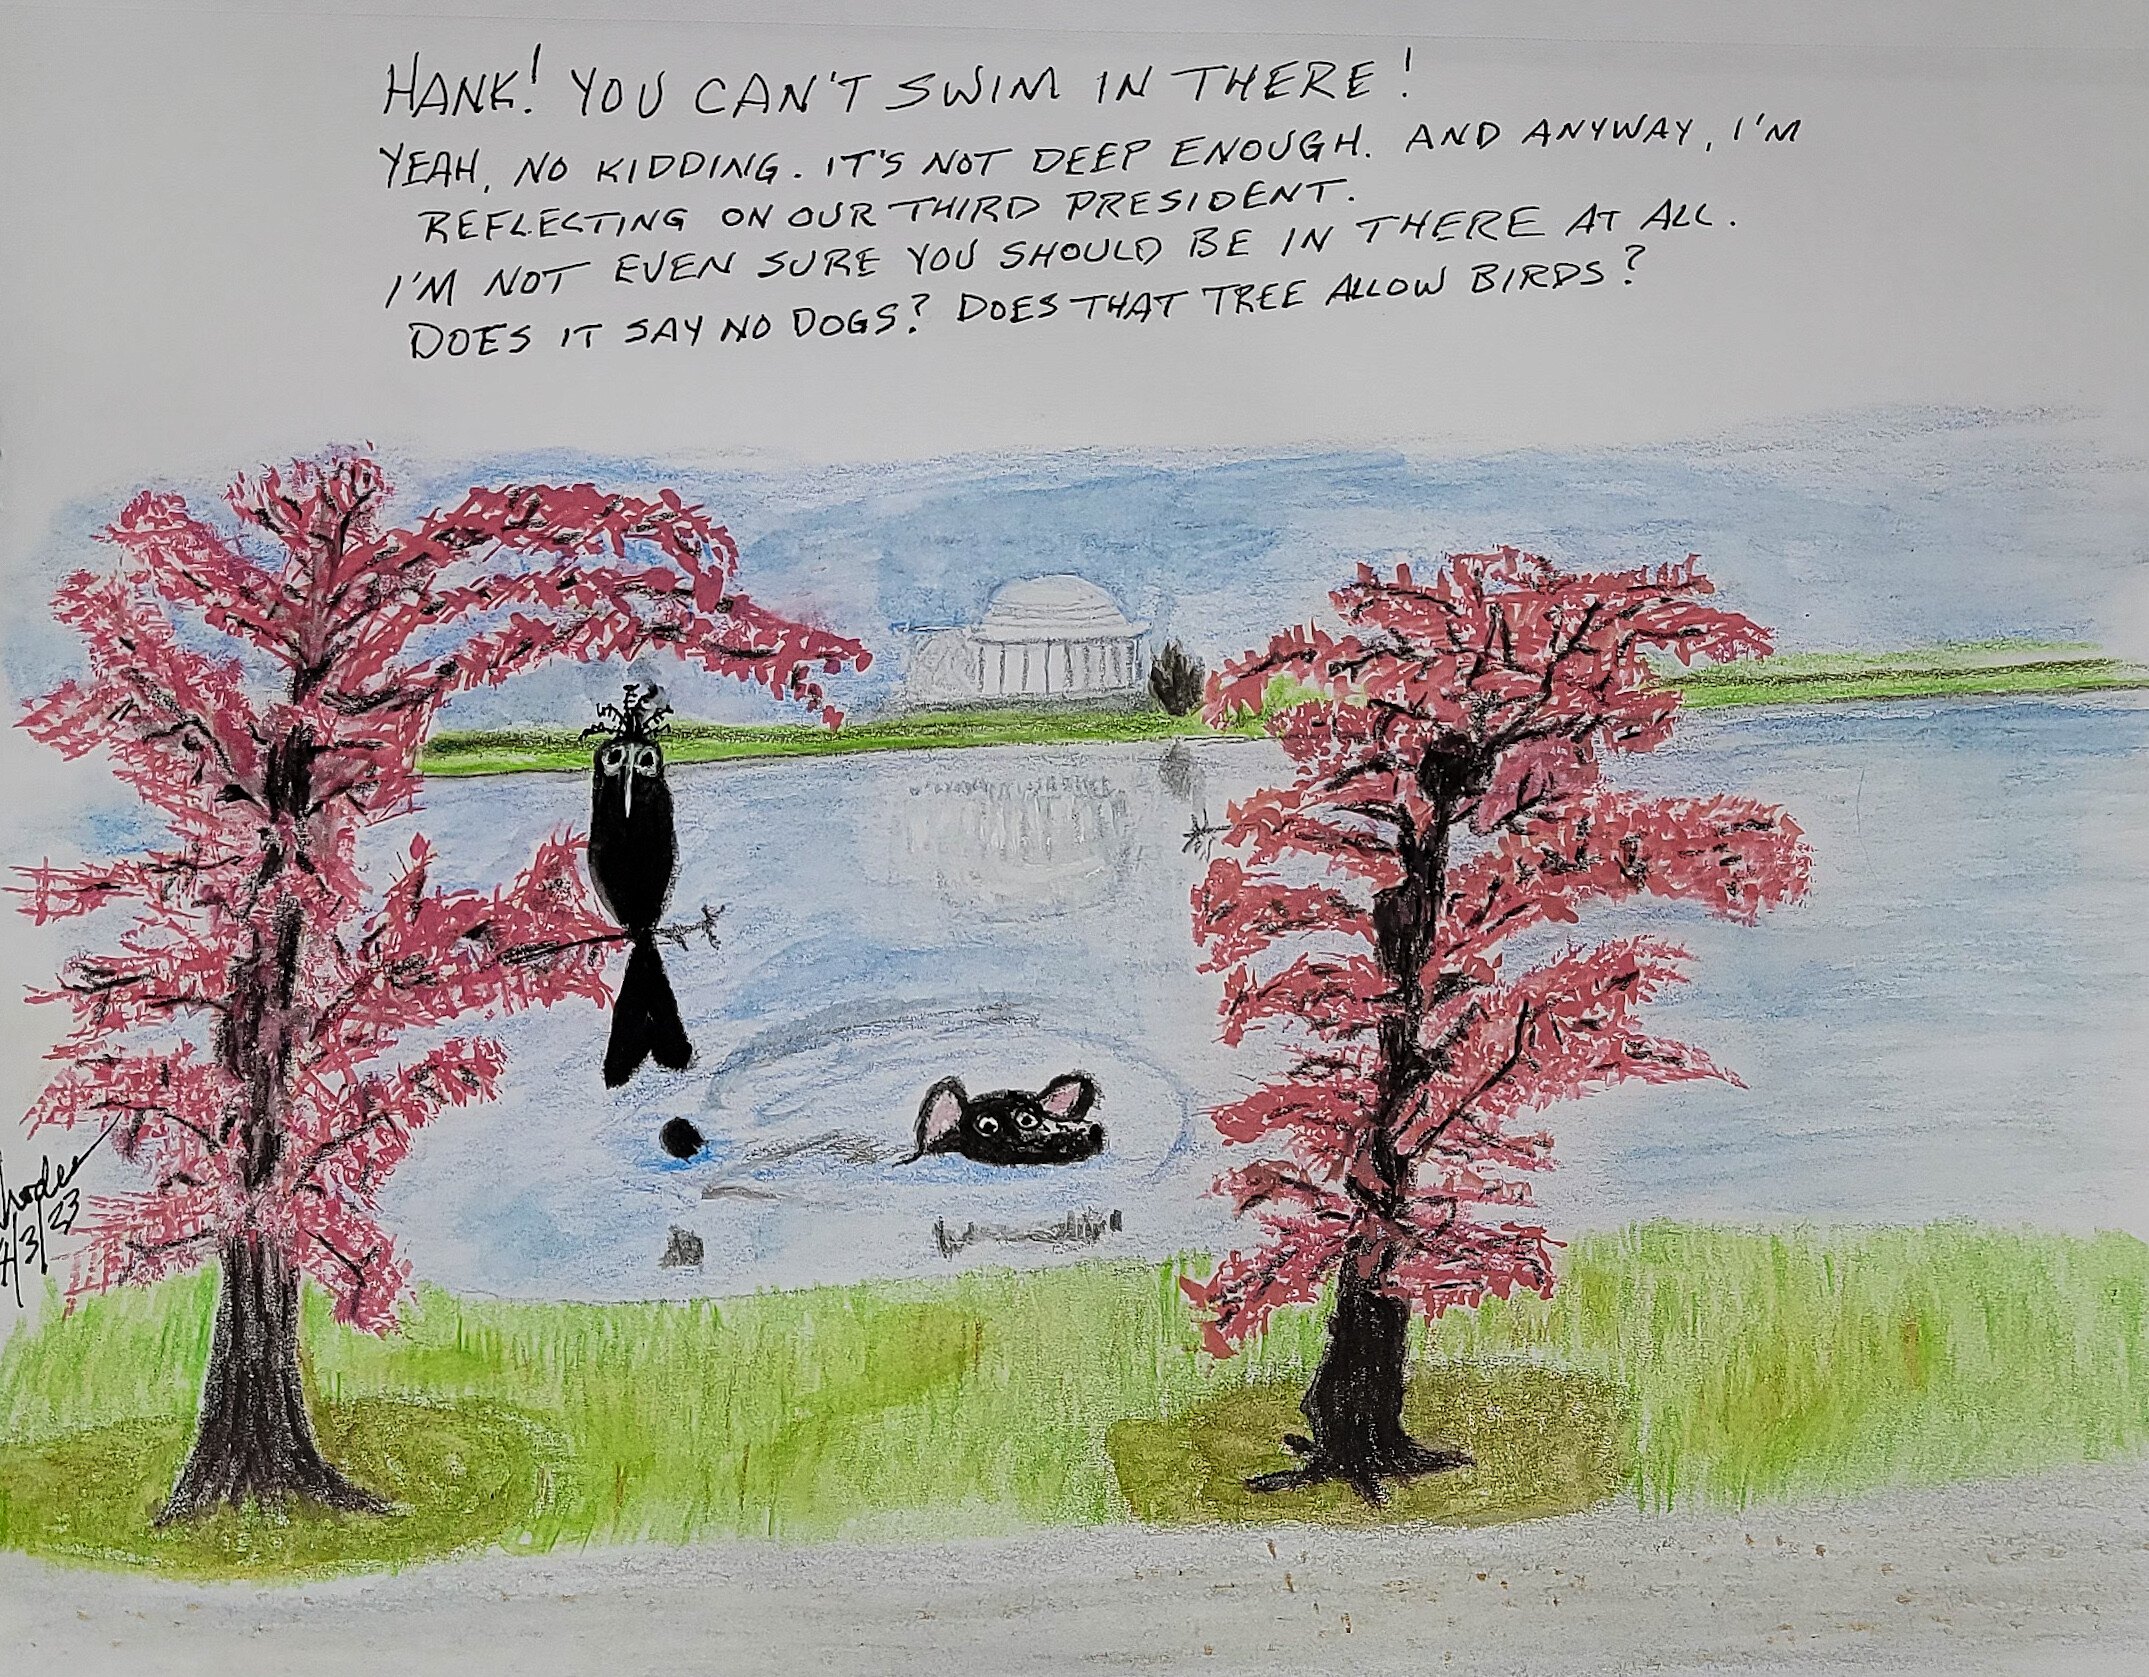 HANK! YOU CAN'T SWIM IN THERE!
YEAH, NO KIDDING. IT'S NOT DEEP ENOUGH. AND ANYWAY, I'M
REFLECTING ON OUR THIRD PRESIDENT.
I'M NOT EVEN SURE YOU SHOULD BE IN THERE AT ALL.
DOES IT SAY NO DOGS? DOES THAT TREE ALLOW BIRDS?
4/3/23